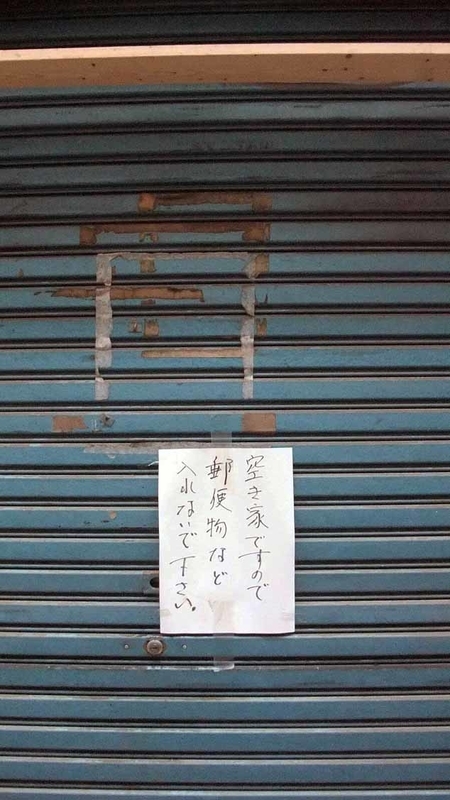 空き家ですので
郵便物など
入れないで下さい。